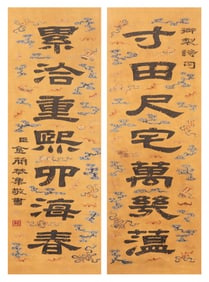 御製詩句
寸田尺宅萬幾蘊
累洽重熙卯海春
臣金簡恭集敬書